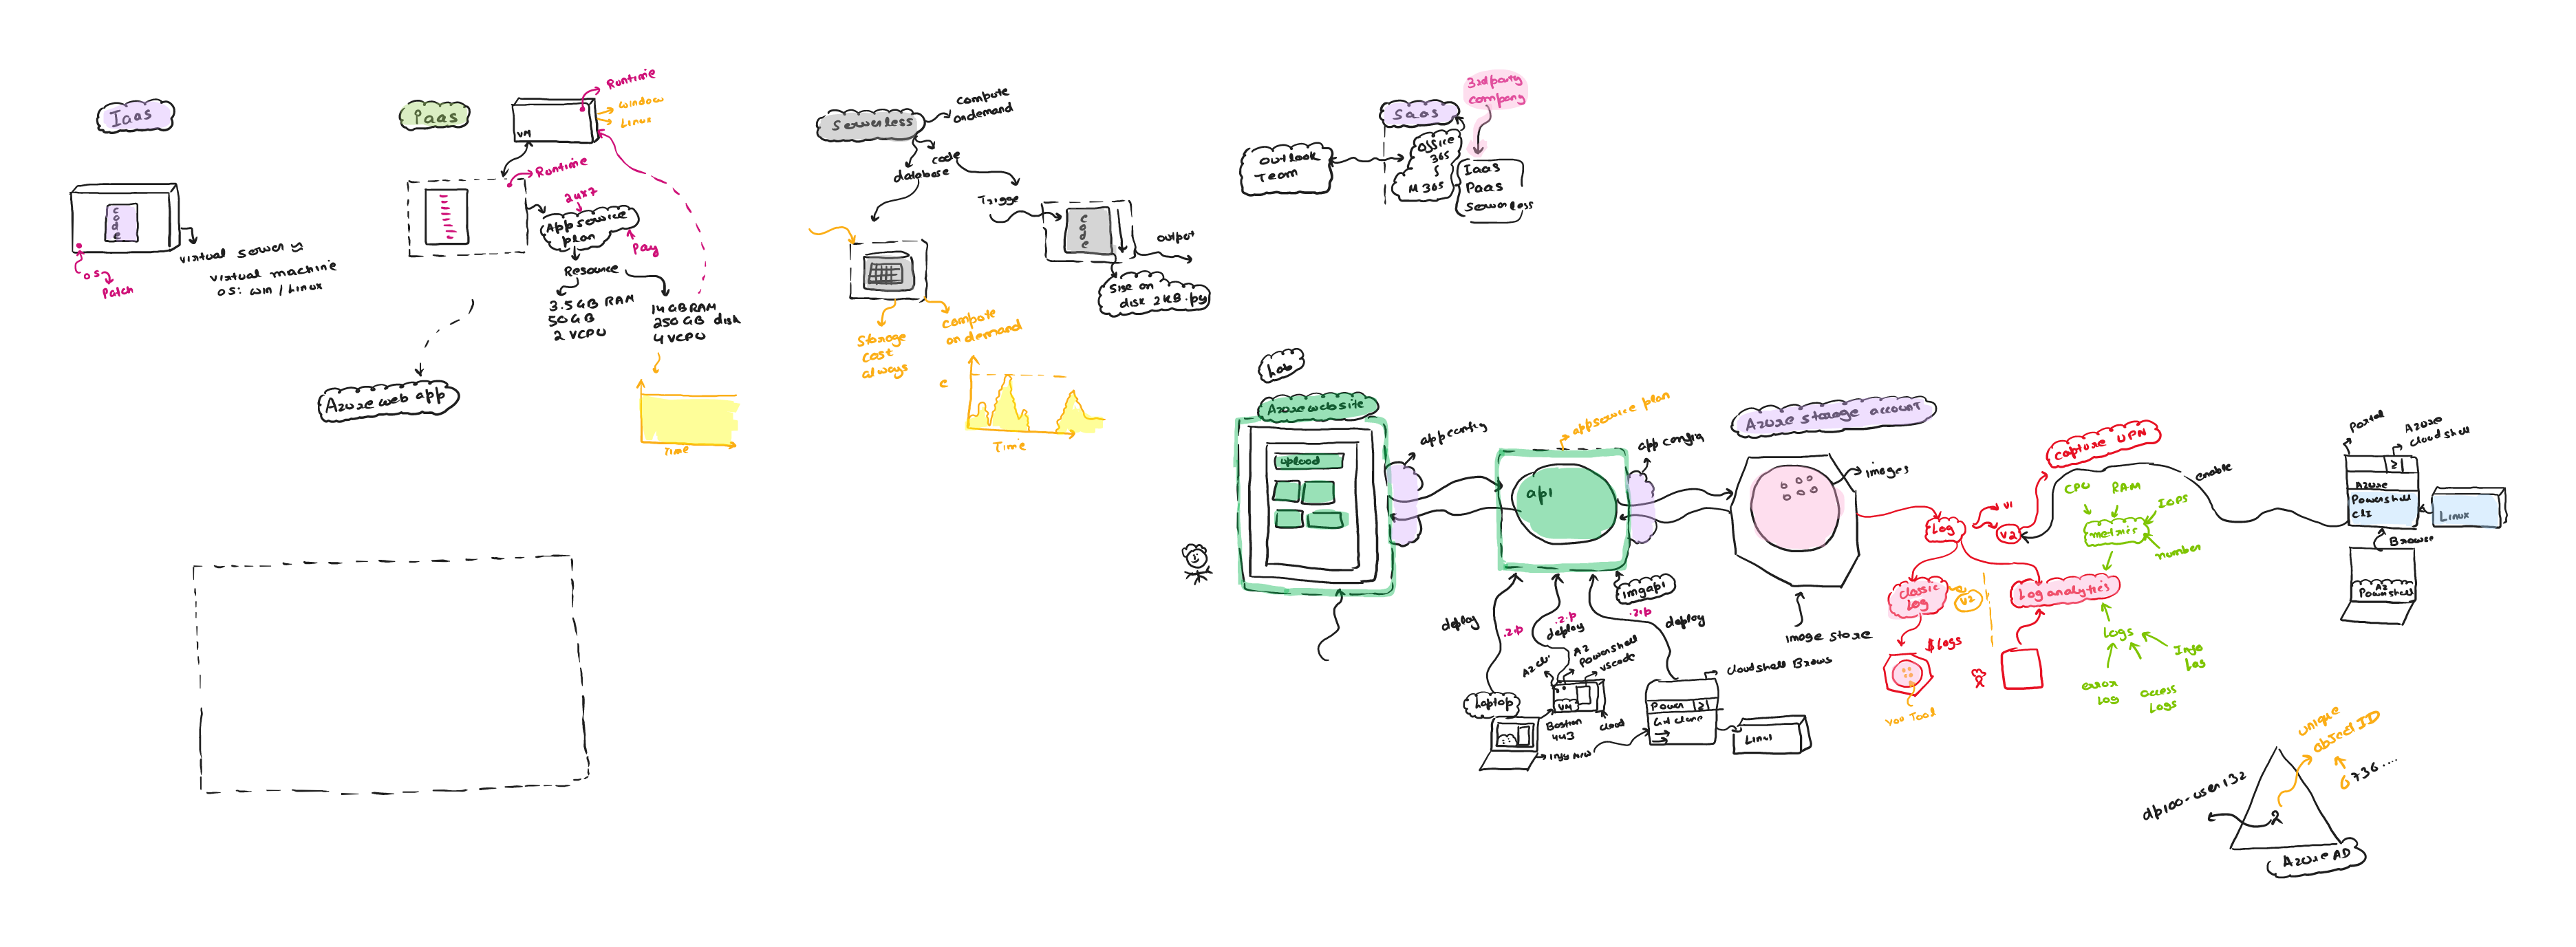 Iaas
code
OS
Patch
virtual server ≈
virtual machine
OS: win / Linux
Paas
VM
Runtime
window
Linux
Runtime
24x7
App service
plan
Pay
Resource
3.5 GB RAM
50 GB
2 VCPU
14 GB RAM
250 GB disk
4 VCPU
Time
Azure web app
Serverless
compute
on demand
code
database
Trigge
code
output
Size on
disk 2KB .py
Storage
cost
always
compute
on demand
c
Time
3rd party
company
Saas
Outlook
Team
Office
365
M 365
Iaas
Paas
Serverless
Lab
Azure web site
upload
app config
app service plan
api
app config
imgapi
Azure storage account
images
image store
deploy
.zip
.zip
deploy
.zip
deploy
AZ cli
AZ
Powershell
vscode
Laptop
VM
Bastion
443
cloud
cloudshell Brows
Power
Git clone
Log
v1
v2
capture UPN
enable
classic
Log
v2
$Logs
Log analytics
CPU
RAM
IOPS
metrics
number
Logs
Info
Log
error
Log
access
Logs
Portal
Azure
cloud shell
Azure
Powershell
CLI
Linux
Browse
AZ
Powershell
unique
object ID
6736....
dp100-user132
Azure AD